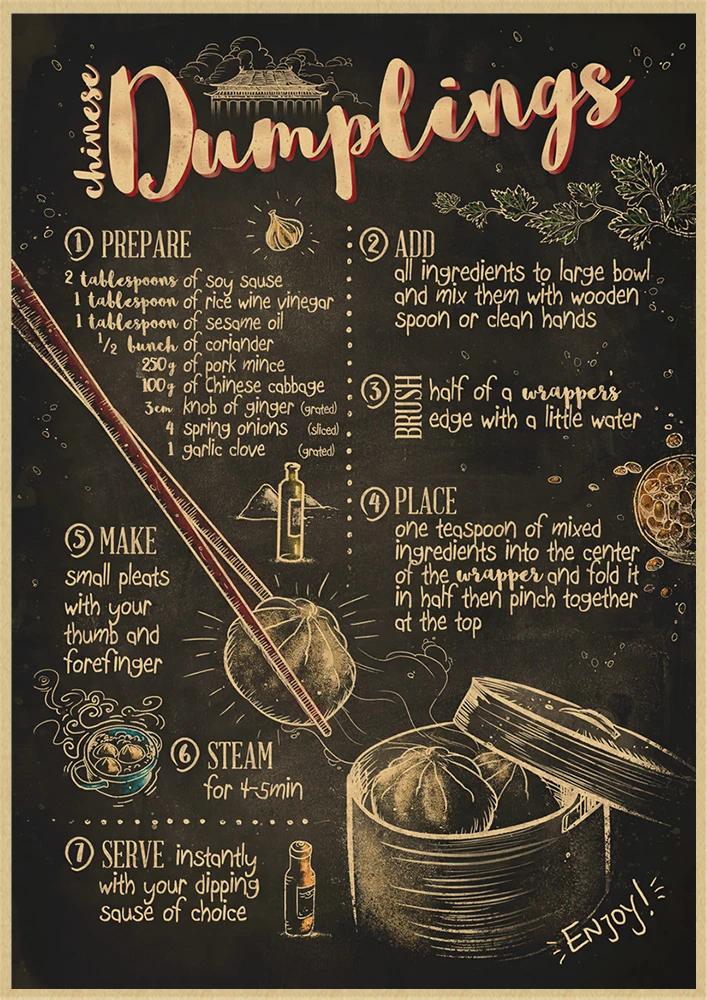 chinese
Dumplings
1 PREPARE
2 tablespoons of soy sause
1 tablespoon of rice wine vinegar
1 tablespoon of sesame oil
1/2 bunch of coriander
250g of pork mince
100g of Chinese cabbage
3cm knob of ginger (grated)
4 spring onions (sliced)
1 garlic clove (grated)
2 ADD
all ingredients to large bowl
and mix them with wooden
spoon or clean hands
3 BRUSH
half of a wrapper's
edge with a little water
4 PLACE
one teaspoon of mixed
ingredients into the center
of the wrapper and fold it
in half then pinch together
at the top
5 MAKE
small pleats
with your
thumb and
forefinger
6 STEAM
for 4-5min
7 SERVE instantly
with your dipping
sause of choice
ENJOY!